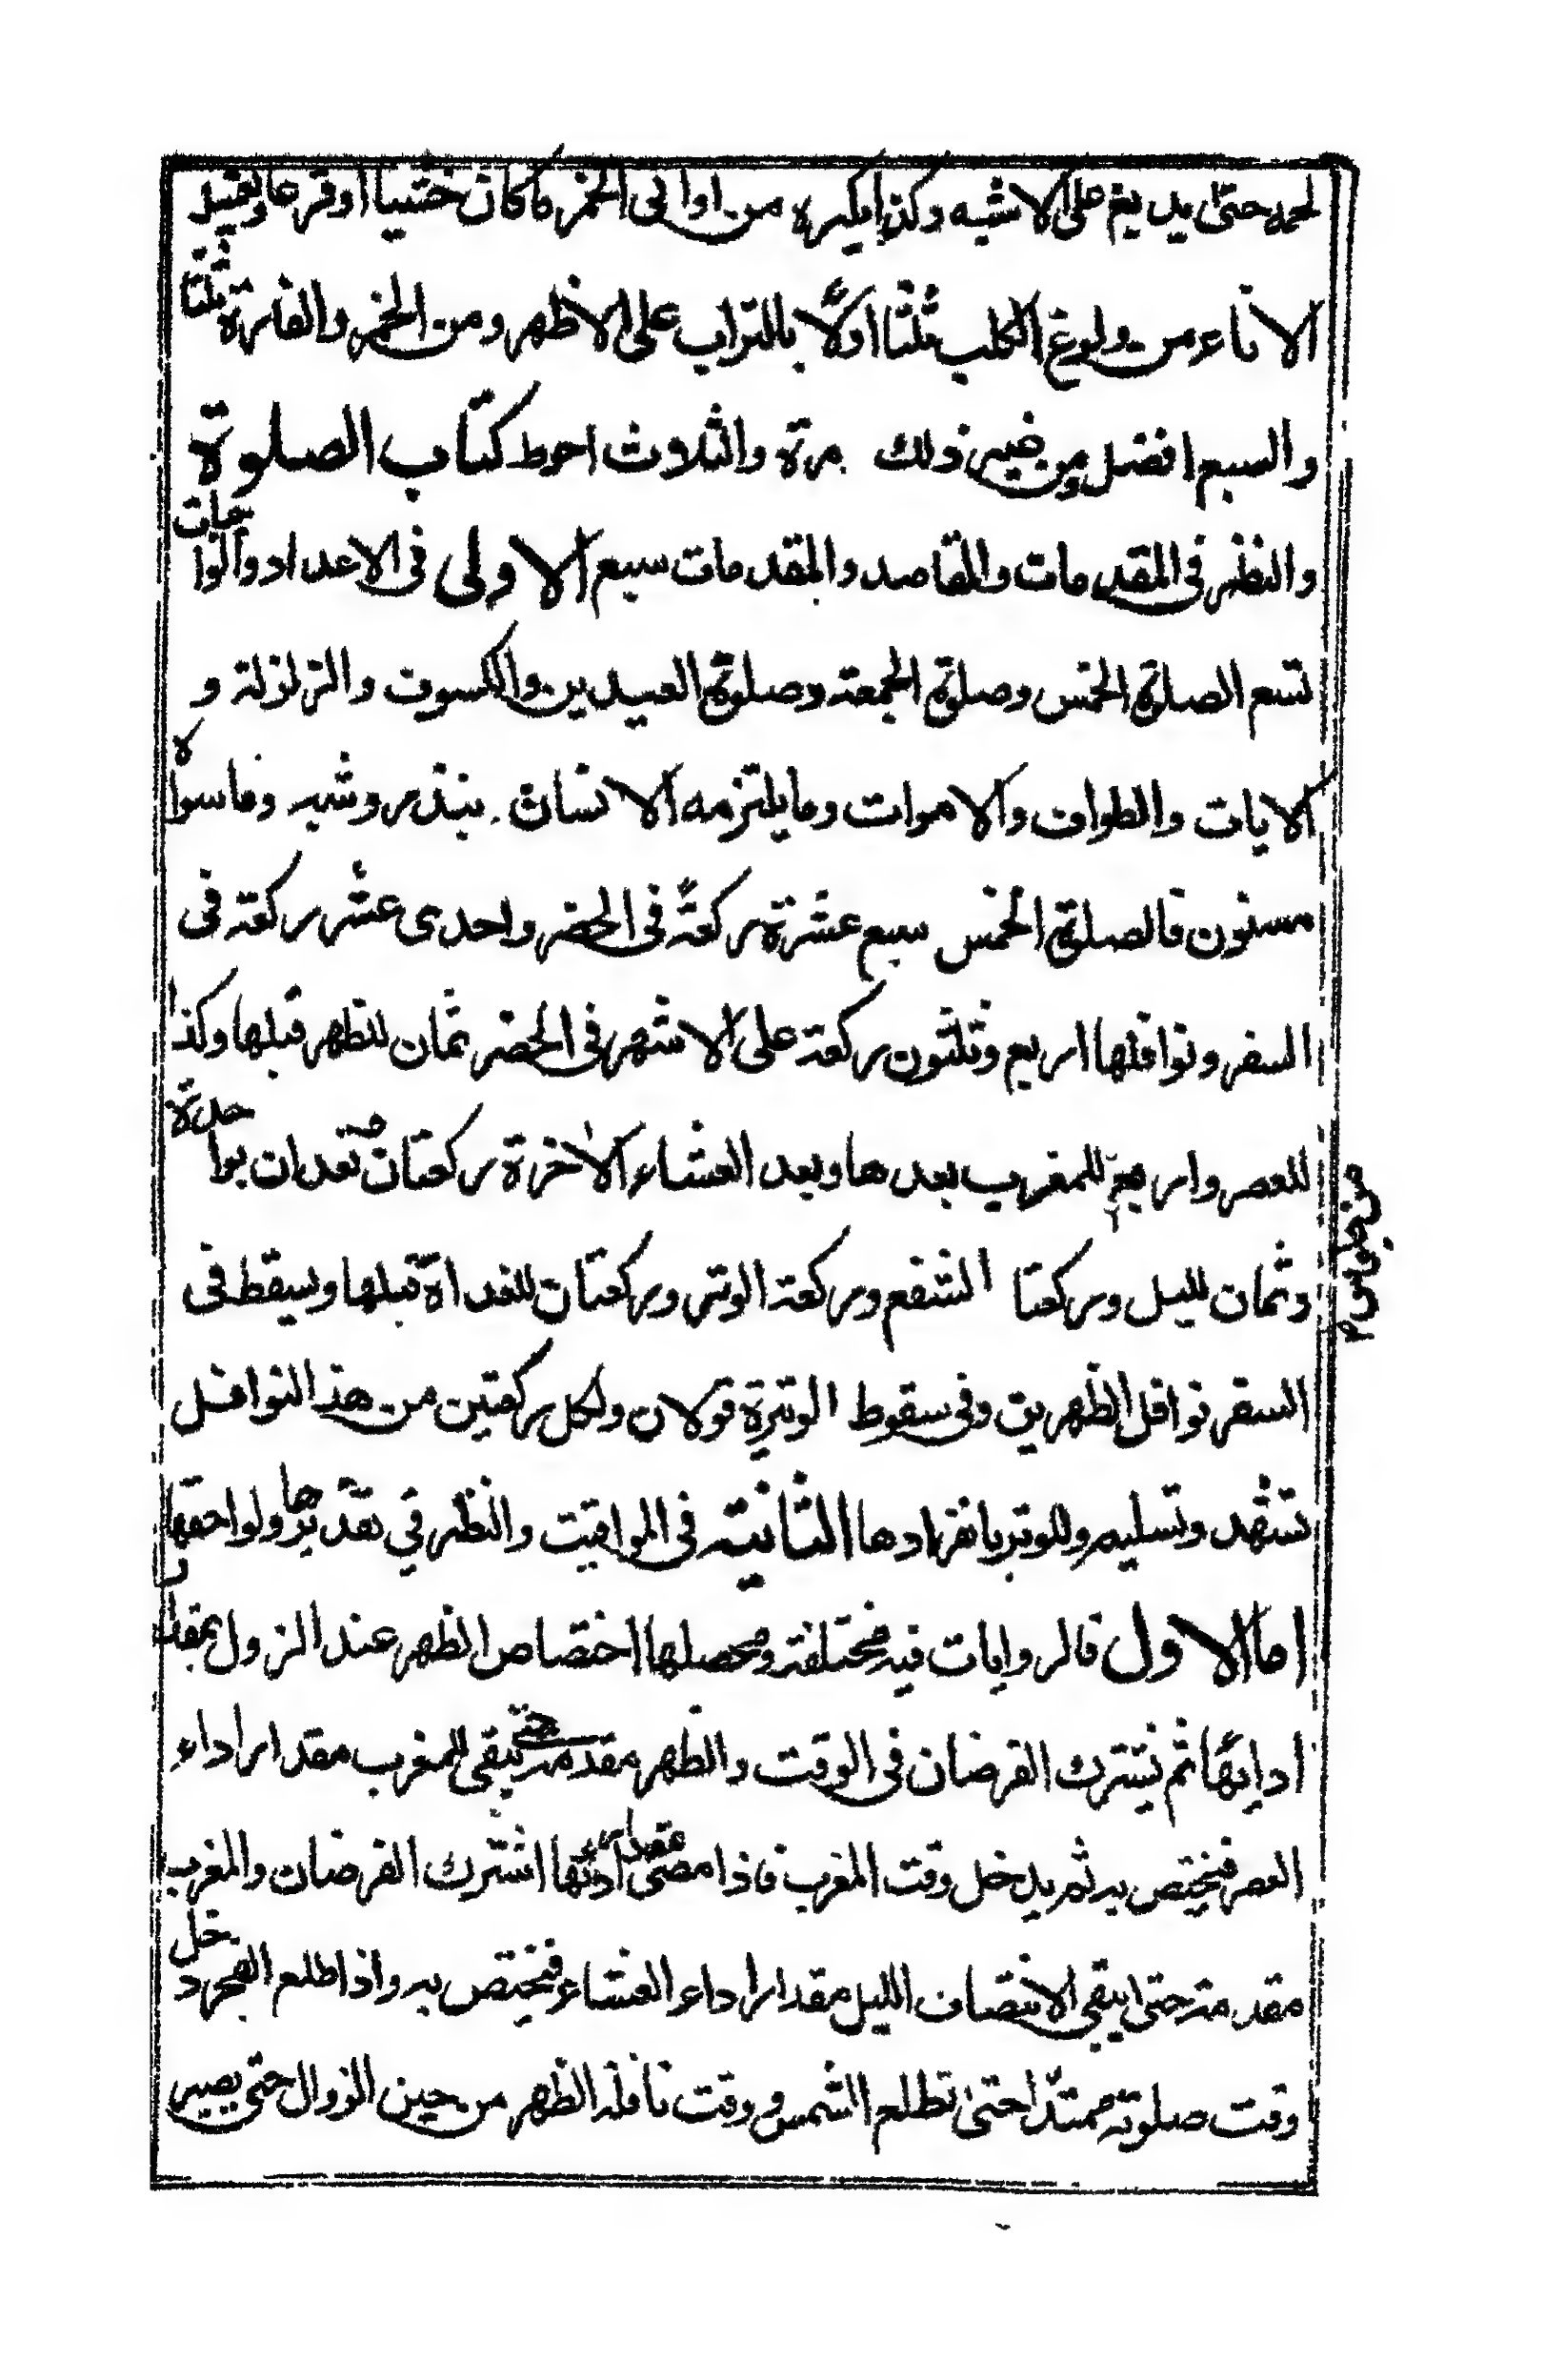 لحمه حتى يدبغ على الاشبه وكذا يكره من اوانى الخمر ما كان خشبا او قرعا ويغسل
الاناء من ولوغ الكلب ثلثا اولا بالتراب على الاظهر ومن الخمر والفارة ثلثا
والسبع افضل ومن غير ذلك مرة والثلاث احوط كتاب الصلوة
والنظر فى المقدمات والمقاصد والمقدمات سبع الاولى فى الاعداد والواجبات
تسع الصلوة الخمس وصلوة الجمعة وصلوة العيدين والكسوف والزلزلة و
الايات والطواف والاموات وما يلتزمه الانسان بنذر وشبهه وما سواه
مسنون فالصلوة الخمس سبع عشرة ركعة فى الحضر واحدى عشر ركعة فى
السفر ونوافلها اربع وثلثون ركعة على الاشهر فى الحضر ثمان للظهر قبلها وكذا
للعصر واربع للمغرب بعدها وبعد العشاء الاخرة ركعتان تعدان بواحدة
من جلوس
وثمان لليل وركعتا الشفع وركعة الوتر وركعتان للغداة قبلها ويسقط فى
السفر نوافل الظهرين وفى سقوط الوتيرة قولان ولكل ركعتين من هذ النوافل
تشهد وتسليم وللوتر بانفرادها الثانية فى المواقيت والنظر في تقديرها ولواحقها
اما الاول فالروايات فيه مختلفة ومحصلها اختصاص الظهر عند الزوال بمقدار
ادائها ثم يشترك الفرضان فى الوقت والظهر مقدمة حتى يبقى للمغرب مقدار اداء
العصر فيختص به ثم يدخل وقت المغرب فاذا مضى مقدار ادائها اشترك الفرضان والمغرب
مقدمة حتى يبقى لانتصاف الليل مقدار اداء العشاء فيختص به واذا طلع الفجر دخل
وقت صلوته ممتدا حتى تطلع الشمس ووقت نافلة الظهر من حين الزوال حتى يصير